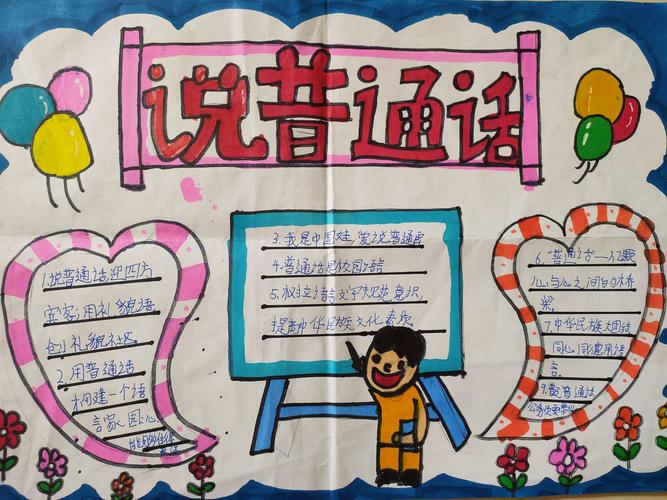 说普通话
1.说普通话,迎四方
宾客;用礼貌语,
创礼貌社区
2.用普通话
构建一个语
言家园;心
3.我是中国娃,爱说普通话
4.普通话是校园语言
5.树立语言文字规范意识,
提高中华民族文化素质
6."普通话"—亿颗
心与心之间的桥
梁
7.中华民族大团结
同心同德用语
言.
9.说普通话,
公务员要带头